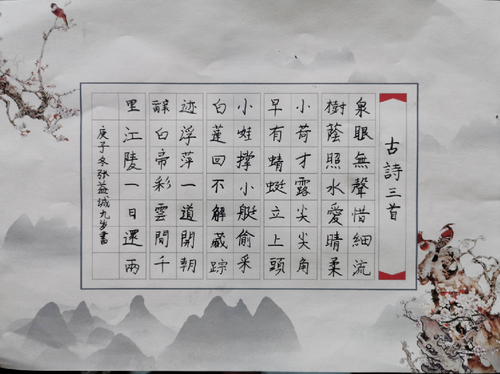 古詩三首
泉眼無聲惜細流
樹蔭照水愛晴柔
小荷才露尖尖角
早有蜻蜓立上頭
小娃撑小艇偷采
白蓮回不解藏踪
迹浮萍一道開朝
辭白帝彩雲間千
里江陵一日還兩
庚子冬張益城九岁書